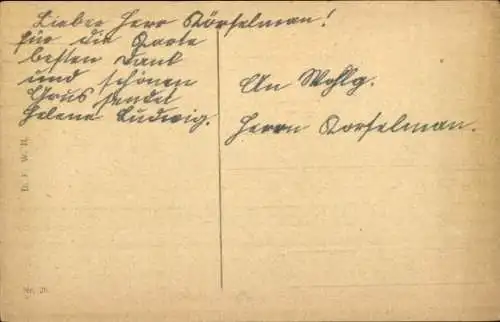 Lieber Herr Körselman!
für die Karte
besten Dank
und schönen
Grus sendet
Helene Ludwig.
An Wohlg.
Herrn Korselman.
D. F. W. H.
Nr. 20.